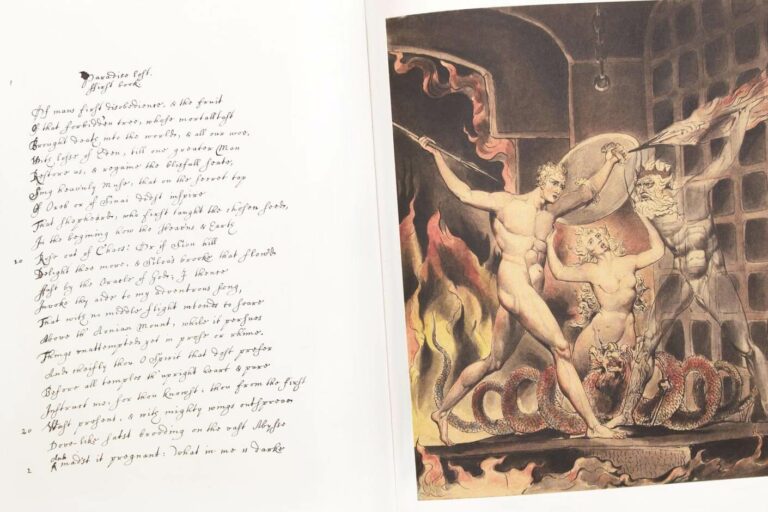 Paradise lost.
ffirst book
Of mans first disobedience, & the fruit
Of that forbidden tree, whose mortall tast
Brought death into the world, & all our woe,
With losse of Eden, till one greater Man
Restore us, & regaine the blisfull seate,
Sing heavenly Muse, that on the secret top
Of Oreb or of Sinai didst inspire
That shepheard, who first taught the chosen seed,
In the begining how the Heavens & Earth
10 Rose out of Chaos: Or if Sion hill
Delight thee more, & Siloas brooke that flowd
Fast by the Oracle of God; I thence
Invoke thy aide to my adventrous song,
That with no middle flight intends to soare
Above th' Aonian Mount, while it persues
Things unattempted yet in prose or rhime,
And cheifly thou O Spirit that dost prefer
Before all temples th' upright heart & pure
Instruct me, for thou knowst; thou from the first
20 Wast present, & with mighty wings outspread
Dove-like satst brooding on the vast Abysse
And madst it pregnant: What in me is darke